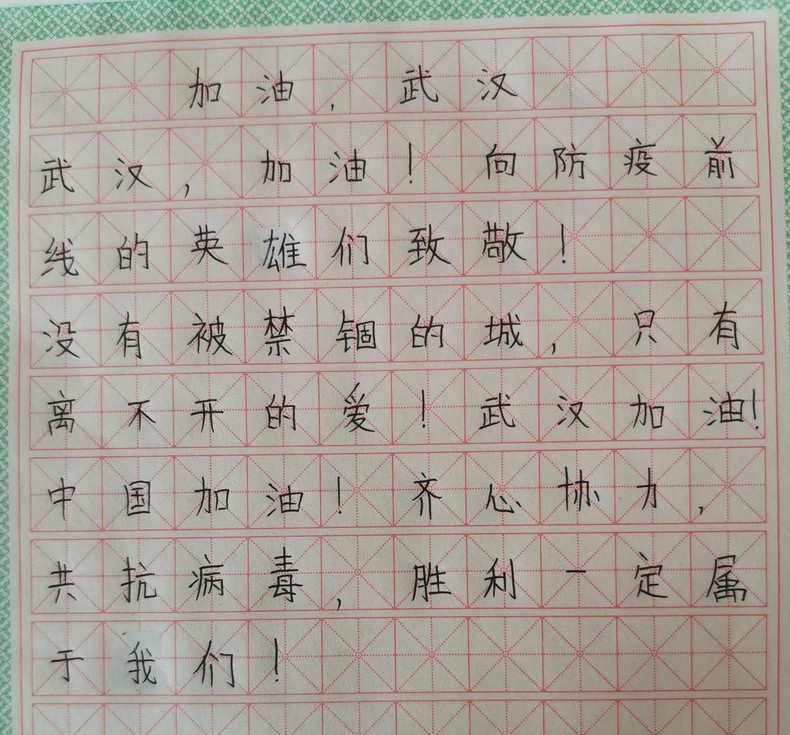 加油，武汉
武汉，加油！向防疫前
线的英雄们致敬！
没有被禁锢的城，只有
离不开的爱！武汉加油！
中国加油！齐心协力，
共抗病毒，胜利一定属
于我们！